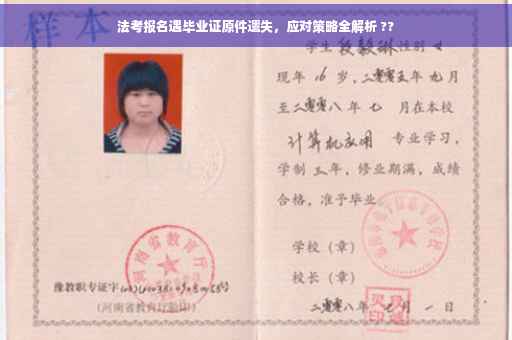 法考报名遇毕业证原件遗失，应对策略全解析 ??
样本
学生段毅琳性别女
现年16岁，二零零五年九月
至二零零八年七 月在本校
计算机应用 专业学习，
学制三年，修业期满，成绩
合格，准予毕业
学校（章）
校长（章）
二零零八年七月一日
河南省教育厅
豫教职专证字
（河南省教育厅验印）